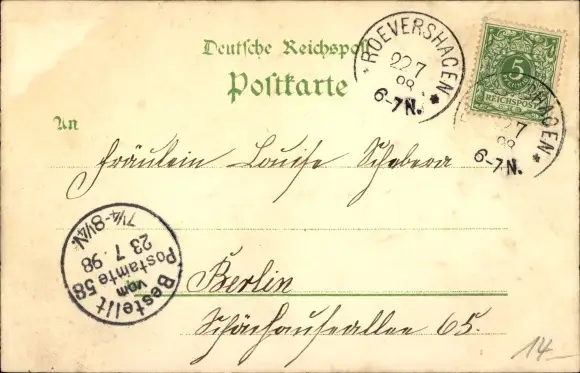 Deutsche Reichspost
Postkarte
* ROEVERSHAGEN *
22 7
98
6-7N.
5
REICHSPOST
HAGEN *
7
98
6-7N.
An
Fräulein Louise Schobera
Berlin
Schönhauseallee 65.
Bestellt
vom
Postamte 58
23 7. 98
7¼-8¼N.
14.–